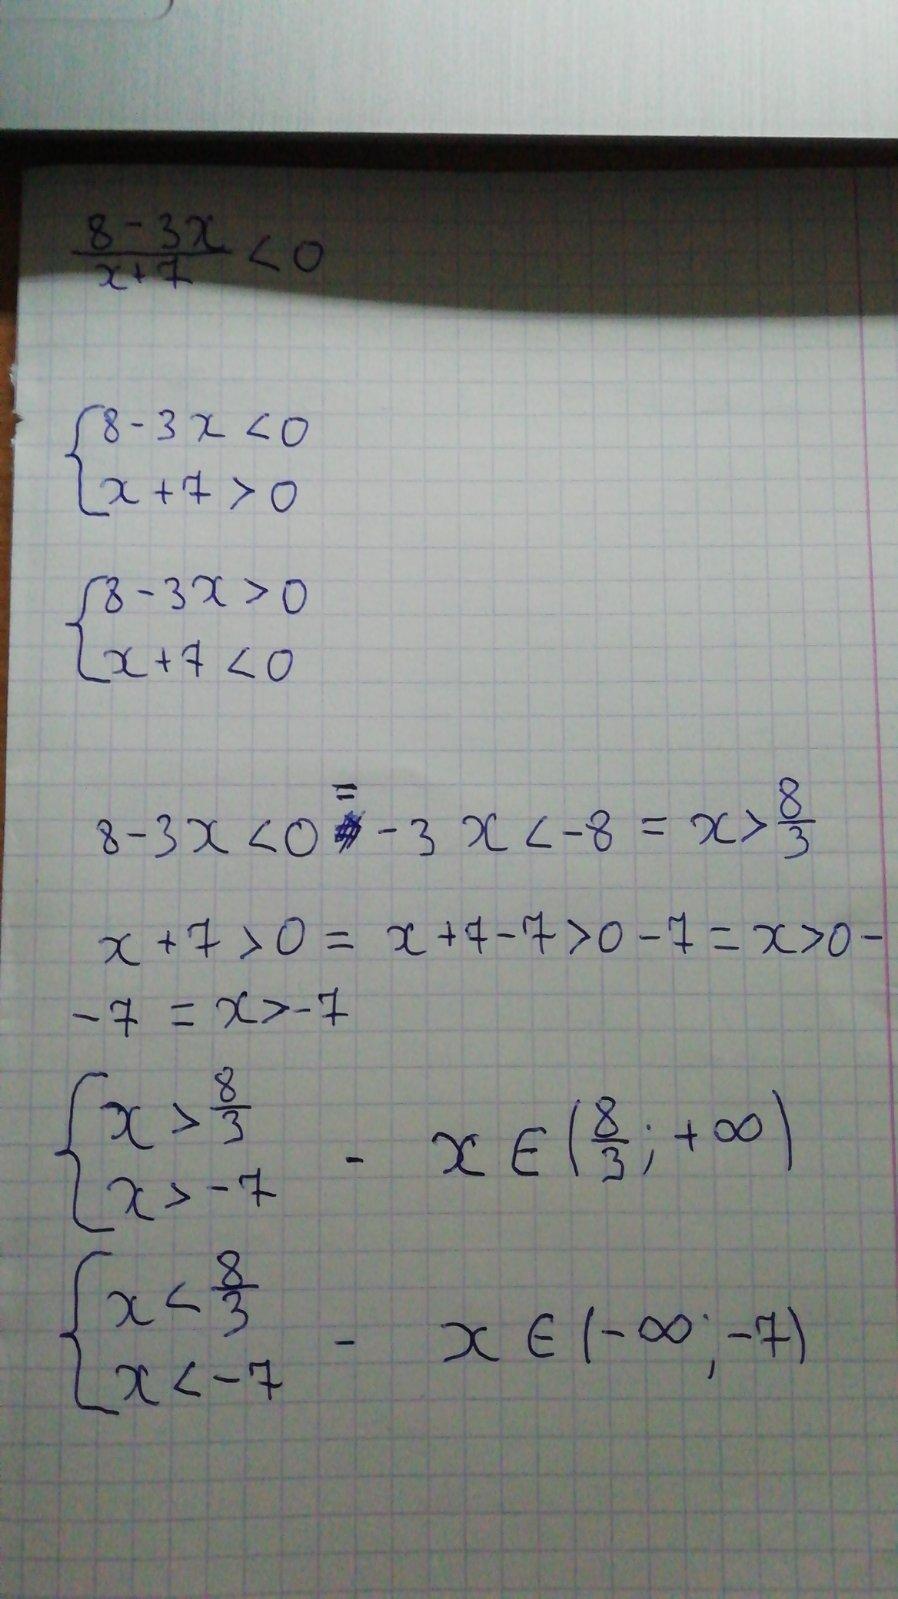 8-3x
x+7 <0
{8-3x<0
{x+7>0
{8-3x>0
{x+7<0
8-3x<0 = -3x<-8 = x>8/3
x+7>0 = x+7-7>0-7 = x>0-
-7 = x>-7
{x>8/3
{x>-7 - x∈(8/3;+∞)
{x<8/3
{x<-7 - x∈(-∞;-7)